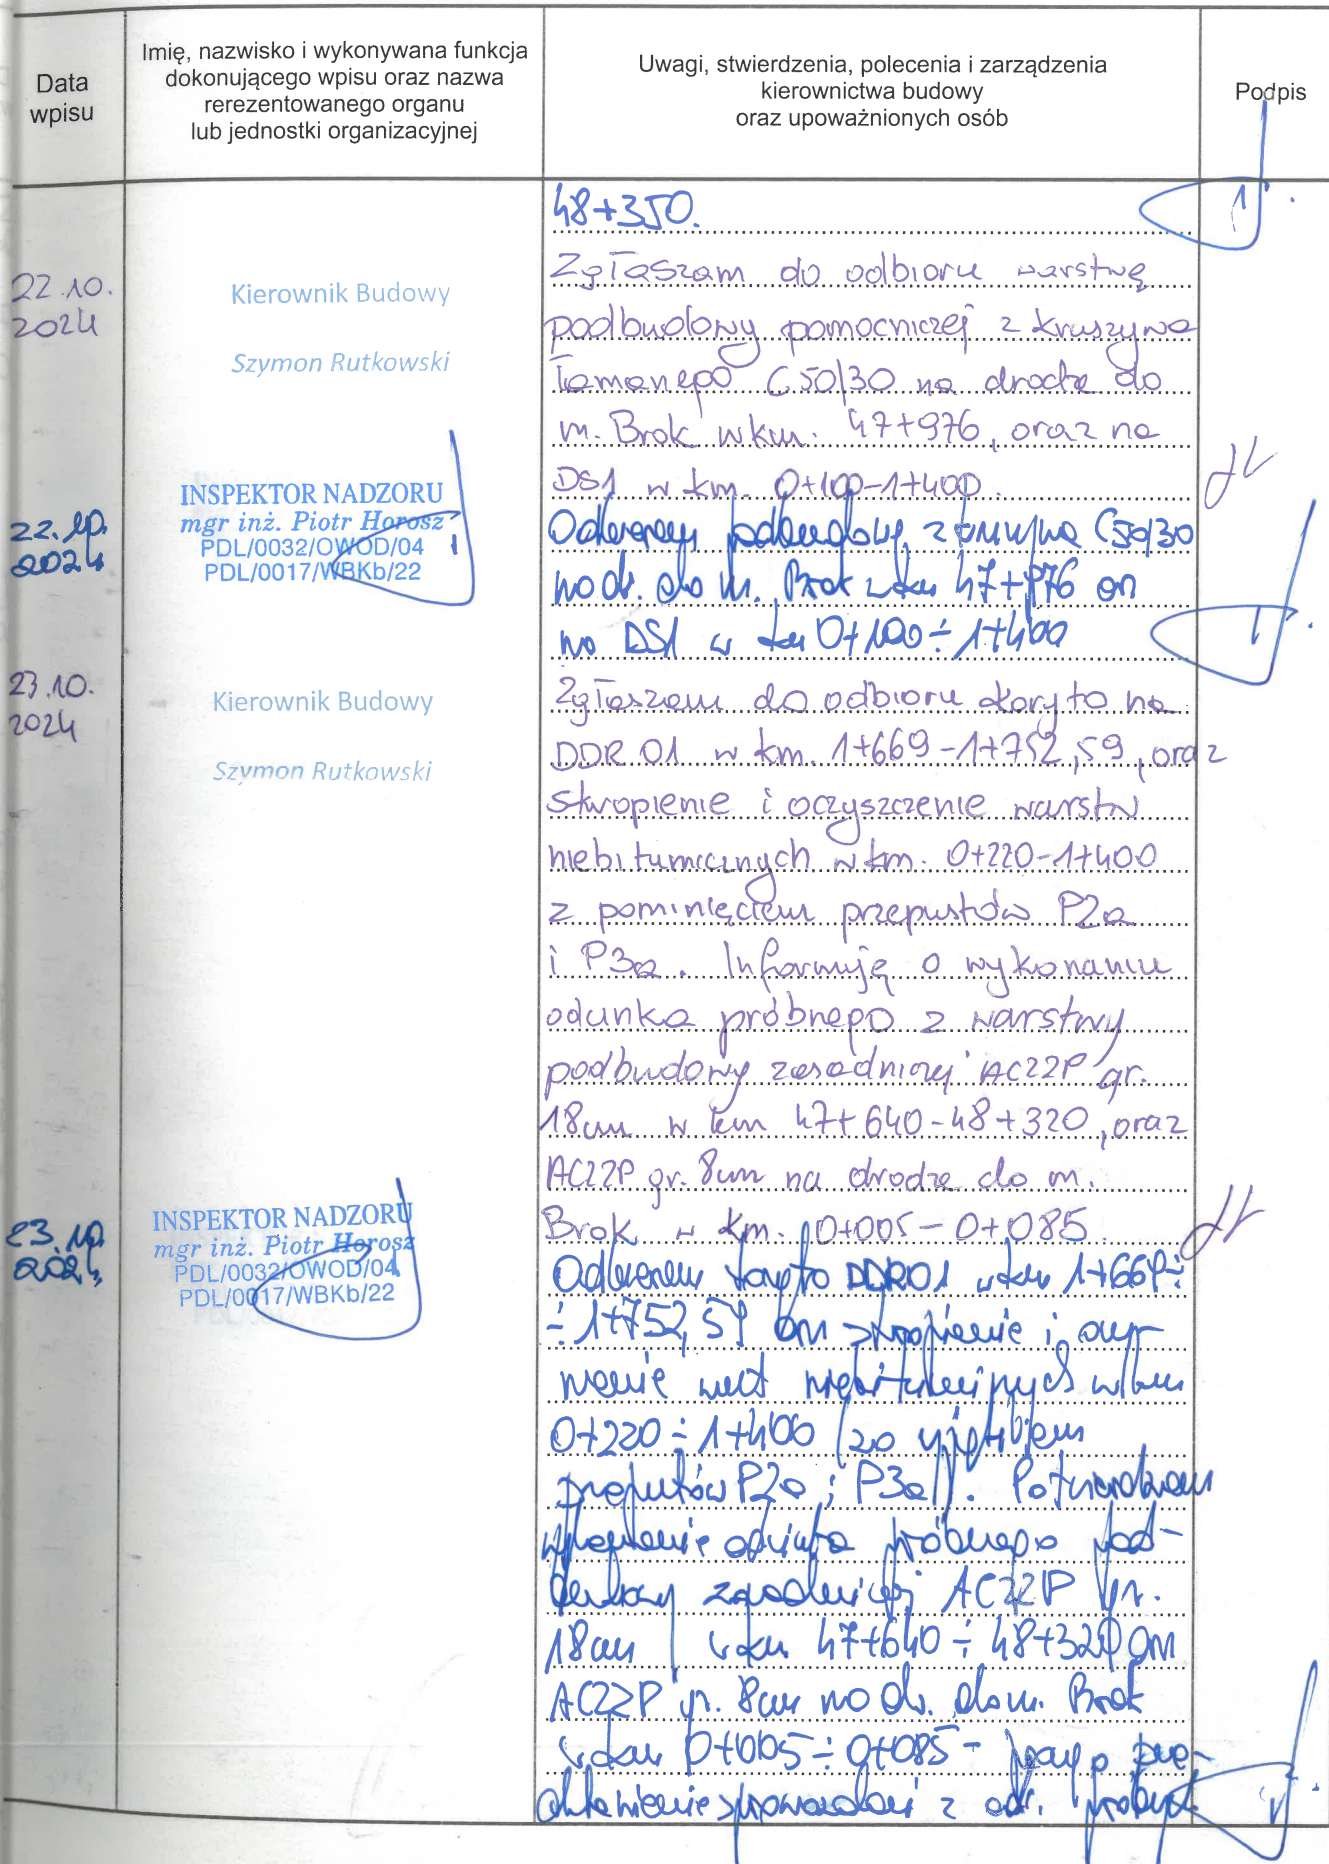 Data
wpisu
Imię, nazwisko i wykonywana funkcja
dokonującego wpisu oraz nazwa
rerezentowanego organu
lub jednostki organizacyjnej
Uwagi, stwierdzenia, polecenia i zarządzenia
kierownictwa budowy
oraz upoważnionych osób
Podpis
48+350.
22.10.
2024
Kierownik Budowy
Szymon Rutkowski
Zgłaszam do odbioru warstwę
podbudowy pomocniczej z kruszywa
łamanego C50/30 na drodze do
m. Brok w km. 47+976, oraz na
DS1 w km. 0+100-1+400.
22.10.
2024
INSPEKTOR NADZORU
mgr inż. Piotr Horosz
PDL/0032/OWOD/04
PDL/0017/WBKb/22
Odbieram podbudowę z kruszywa C50/30
na dr. do m. Brok w km 47+976 oraz
na DS1 w km 0+100÷1+400
23.10.
2024
Kierownik Budowy
Szymon Rutkowski
Zgłaszam do odbioru koryto na
DDR 01 w km. 1+669-1+752,59, oraz
skropienie i oczyszczenie warstw
niebitumicznych w km. 0+220-1+400
z pominięciem przepustów P2a
i P3a. Informuję o wykonaniu
odcinka próbnego z warstwy
podbudowy zasadniczej AC22P gr.
18cm w km 47+640-48+320, oraz
AC22P gr. 8cm na drodze do m.
Brok w km. 0+005-0+085.
23.10.
2024
INSPEKTOR NADZORU
mgr inż. Piotr Horosz
PDL/0032/OWOD/04
PDL/0017/WBKb/22
Odbieram koryto DDR01 w km 1+669÷
÷1+752,59 oraz skropienie i oczy-
szczenie warstw niebitumicznych w km
0+220÷1+400 (za wyjątkiem
przepustów P2a i P3a). Potwierdzam
wykonanie odcinka próbnego pod-
budowy zasadniczej AC22P gr.
18cm w km 47+640÷48+320 oraz
AC22P gr. 8cm na dr. do m. Brok
w km 0+005÷0+085 - proszę o prze-
dstawienie sprawozdań z odc. próbnych